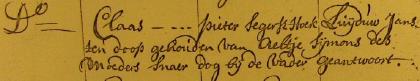 Do Claas - - - - pieter Segersz Hoek Luijduw Jans
sen doop gehouden van Aeltje Sijmons des
Moeders Snaer dog bij de vader geantwoort.